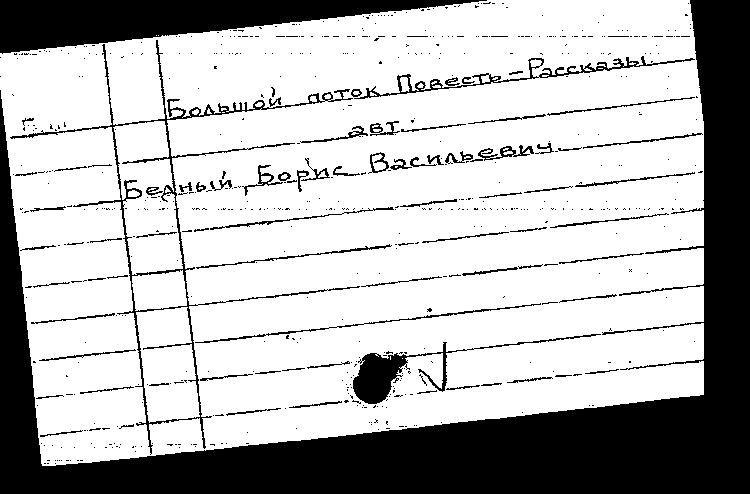 Большой поток Повесть-Рассказы
авт.
Бедный, Борис Васильевич.